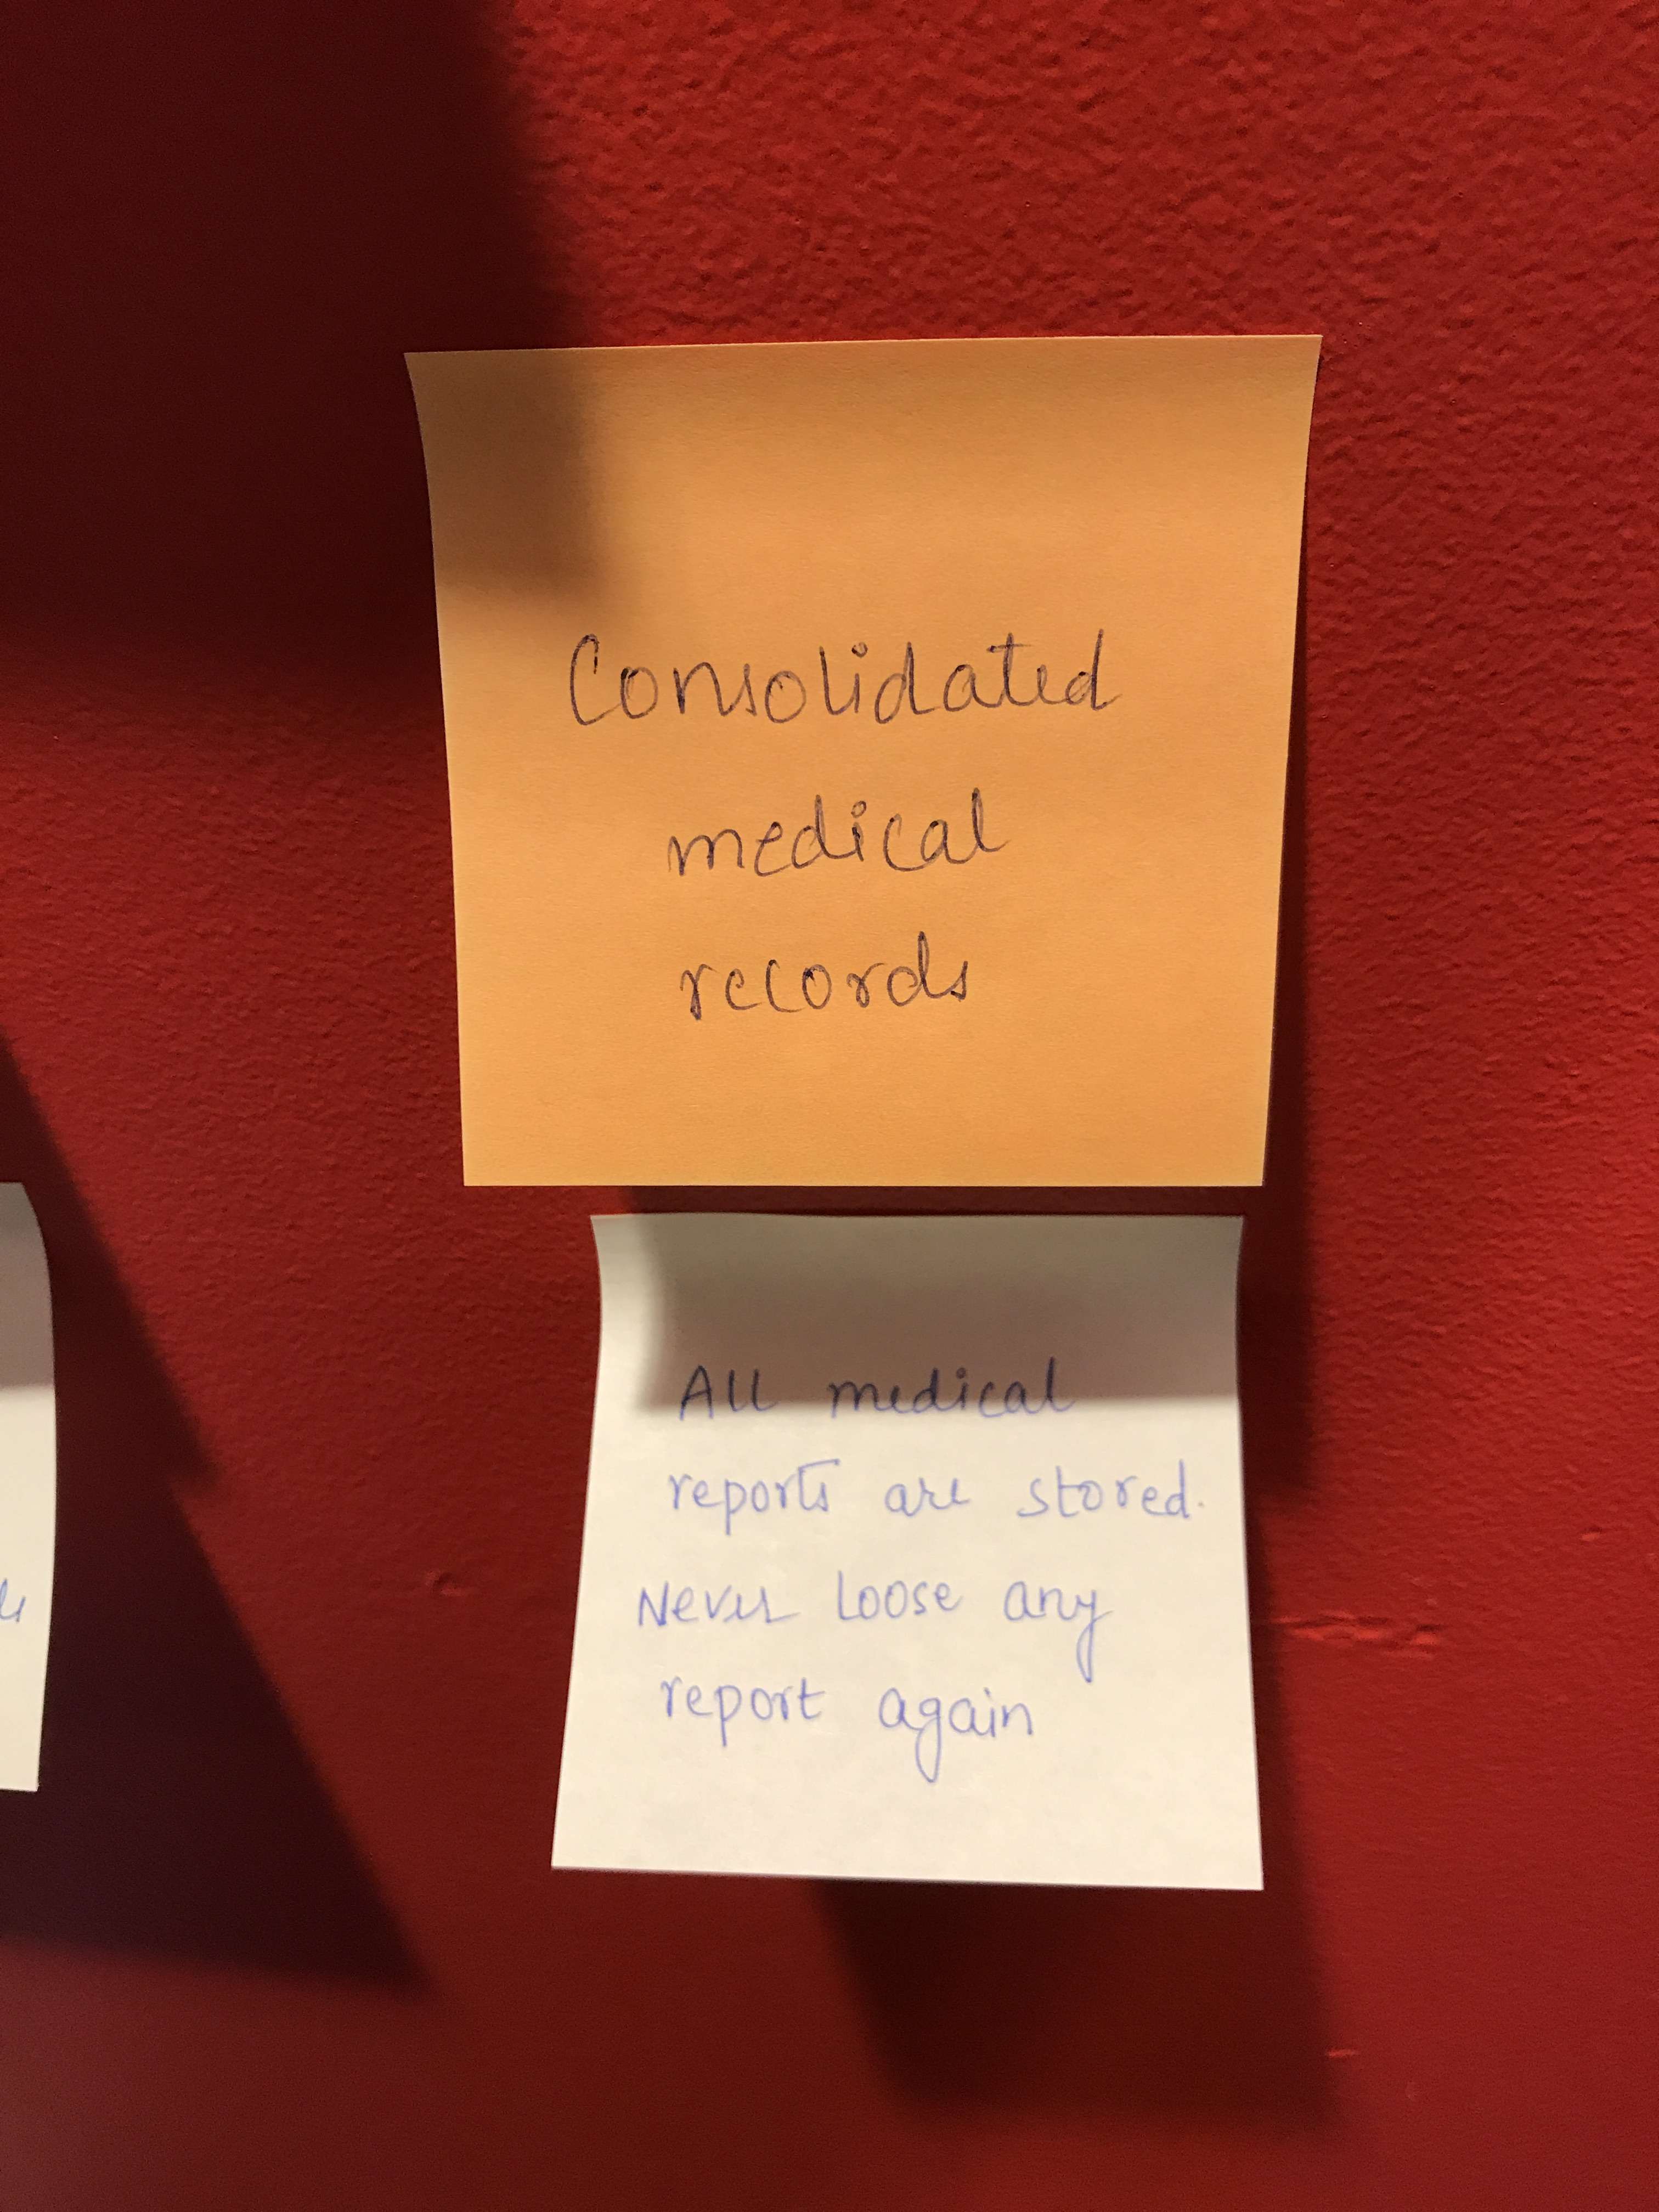 Consolidated
medical
records
All medical
reports are stored.
Never loose any
report again